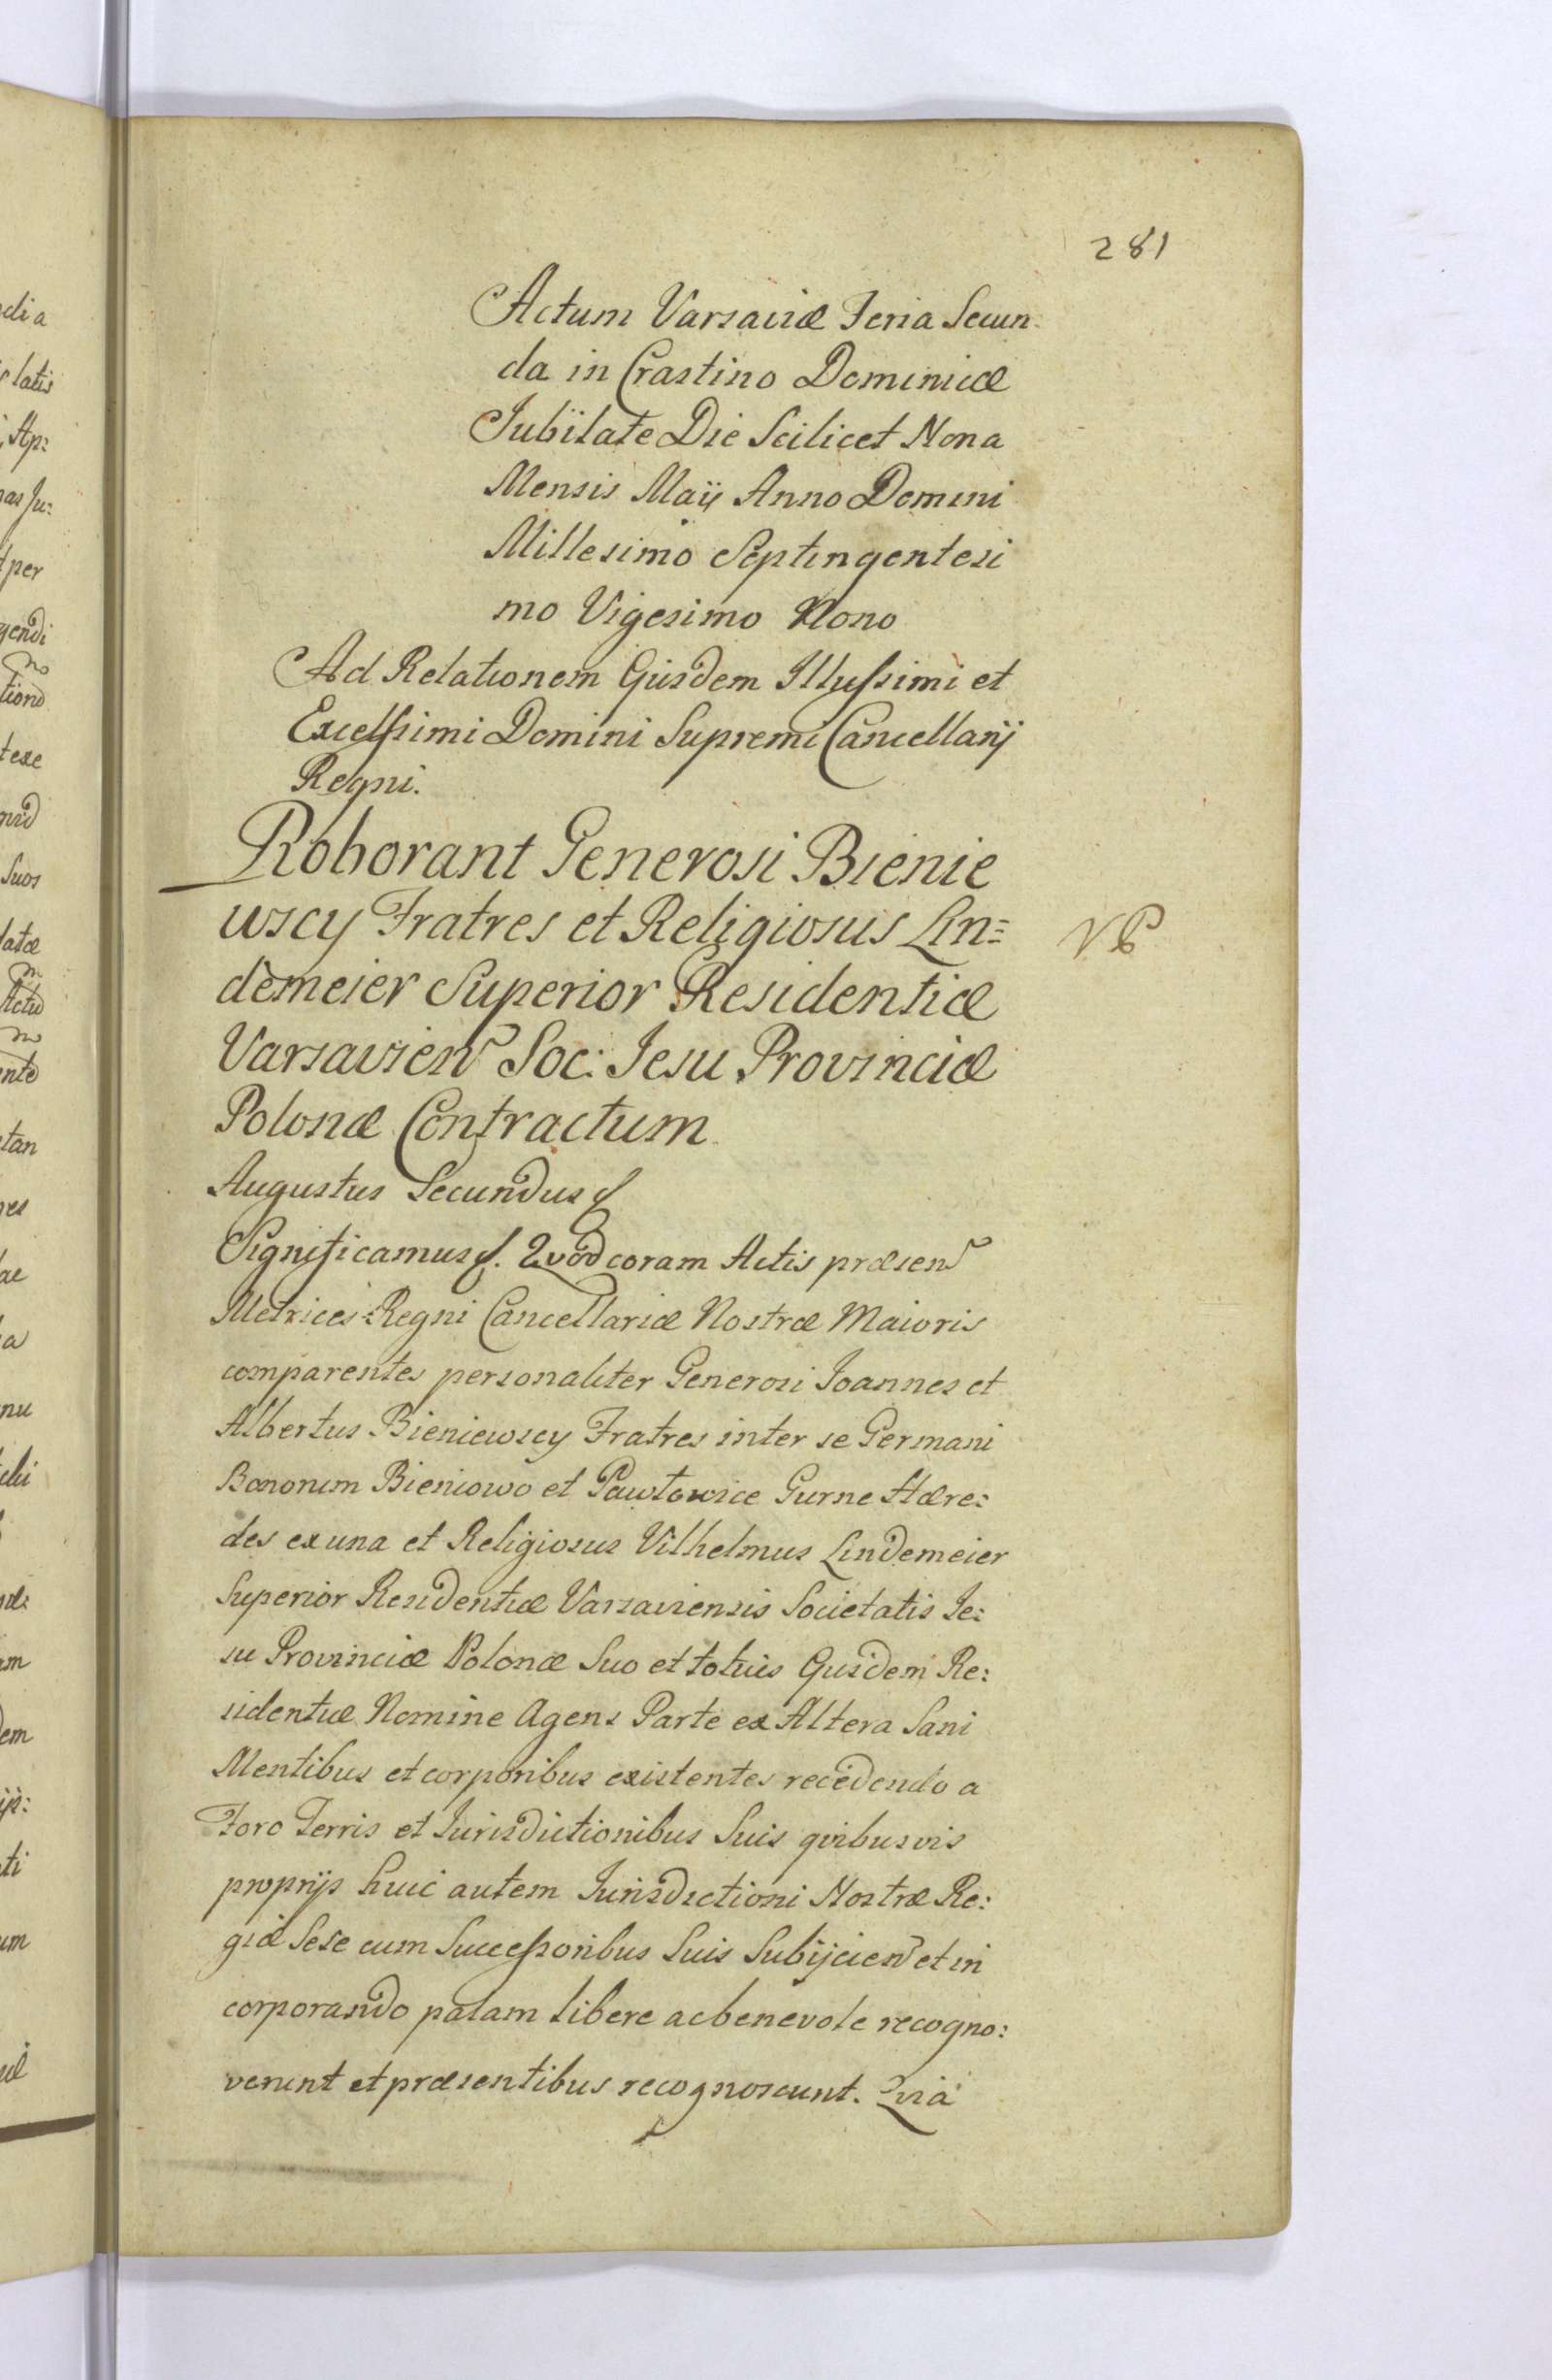 281
Actum Varsaviæ Feria Secun
da in Crastino Dominicæ
Jubilate Die Scilicet Nona
Mensis Maij Anno Domini
Millesimo Septingentesi
mo Vigesimo Nono
Ad Relationem Ejusdem Illussimi et
Excelssimi Domini Supremi Cancellarij
Regni.
Roborant Generosi Bienie
wscy Fratres et Religiosus Lin=
demeier Superior Residentiæ
Varsavien Soc: Jesu Provinciæ
Polonæ Contractum
VP
Augustus Secundus
Significamus. Quod coram Actis præsen
Metrices Regni Cancellariæ Nostræ Maioris
comparentes personaliter Generosi Joannes et
Albertus Bieniewscy Fratres inter se Germani
Bonorum Bieniowo et Pawłowice Gurne Hære:
des ex una et Religiosus Vilhelmus Lindemeier
Superior Residentiæ Varsaviensis Societatis Je:
su Provinciæ Polonæ Suo et totius Ejusdem Re:
sidentiæ Nomine Agens Parte ex Altera Sani
Mentibus et corporibus existentes recedendo a
Foro Terris et Jurisdictionibus Suis qvibusvis
proprijs huic autem Jurisdictioni Nostræ Re:
giæ Sese cum Successoribus Suis Subijcien et in
corporando palam libere ac benevole recogno:
verunt et præsentibus recognoscunt. Qvia